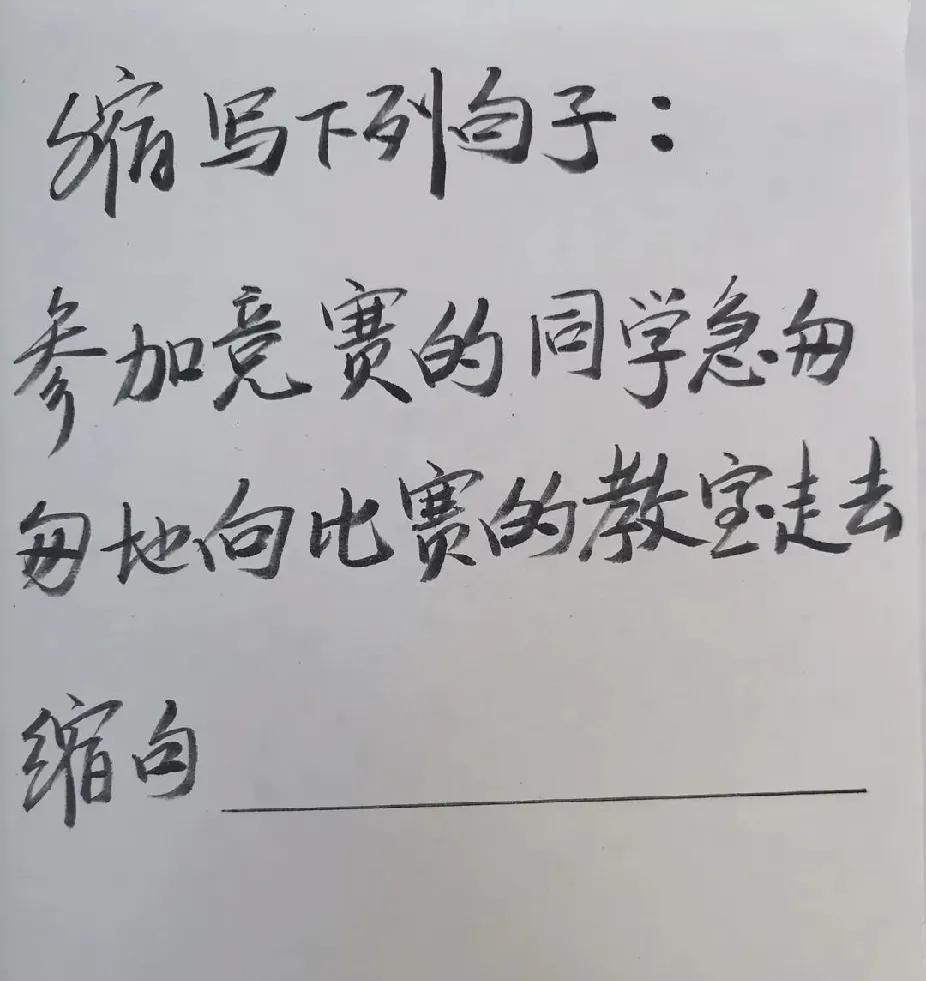 缩写下列句子：
参加竞赛的同学急匆
匆地向比赛的教室走去
缩句